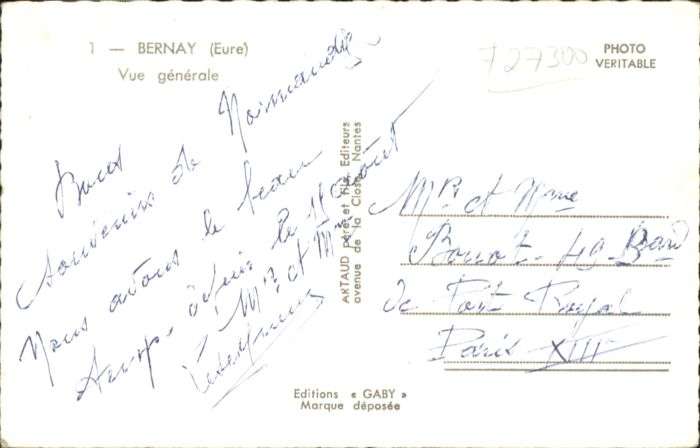 1 — BERNAY (Eure)
Vue générale
727300
PHOTO
VERITABLE
Bons
souvenirs de Normandie
Nous avons le beau
temps depuis le 11 août
Mr et Mme
ARTAUD père et fils, Editeurs
avenue de la Close, Nantes
Mr et Mme
49 Bard
de Port Royal
Paris XIII
Editions « GABY »
Marque déposée